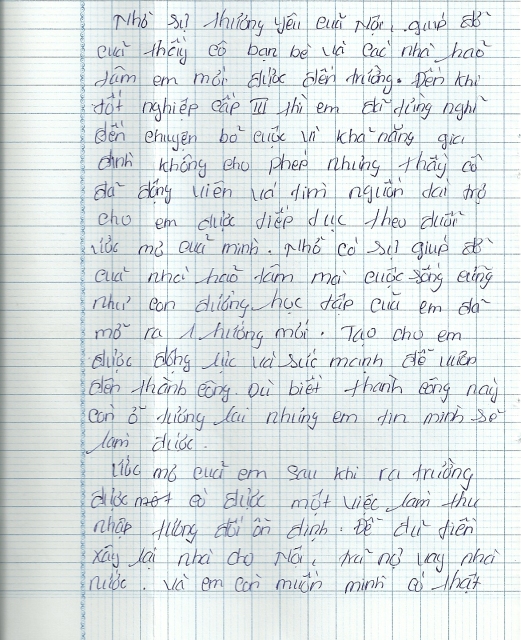 Nhờ sự thương yêu của Nội, giúp đỡ
của thầy cô bạn bè và các nhà hảo
tâm em mới được đến trường. Đến khi
tốt nghiệp cấp III thì em đã từng nghĩ
đến chuyện bỏ cuộc vì khả năng gia
đình không cho phép nhưng thầy cô
đã động viên và tìm nguồn tài trợ
cho em được tiếp tục theo đuổi
ước mơ của mình. Nhờ có sự giúp đỡ
của nhà hảo tâm mà cuộc sống cũng
như con đường học tập của em đã
mở ra 1 hướng mới. Tạo cho em
được động lực và sức mạnh để vươn
đến thành công. Dù biết thành công này
còn ở tương lai nhưng em tin mình sẽ
làm được.
Ước mơ của em sau khi ra trường
được một có được một việc làm thu
nhập tương đối ổn định. Để dư tiền
xây lại nhà cho Nội, trả nợ vay nhà
nước. Và em còn muốn mình có thật